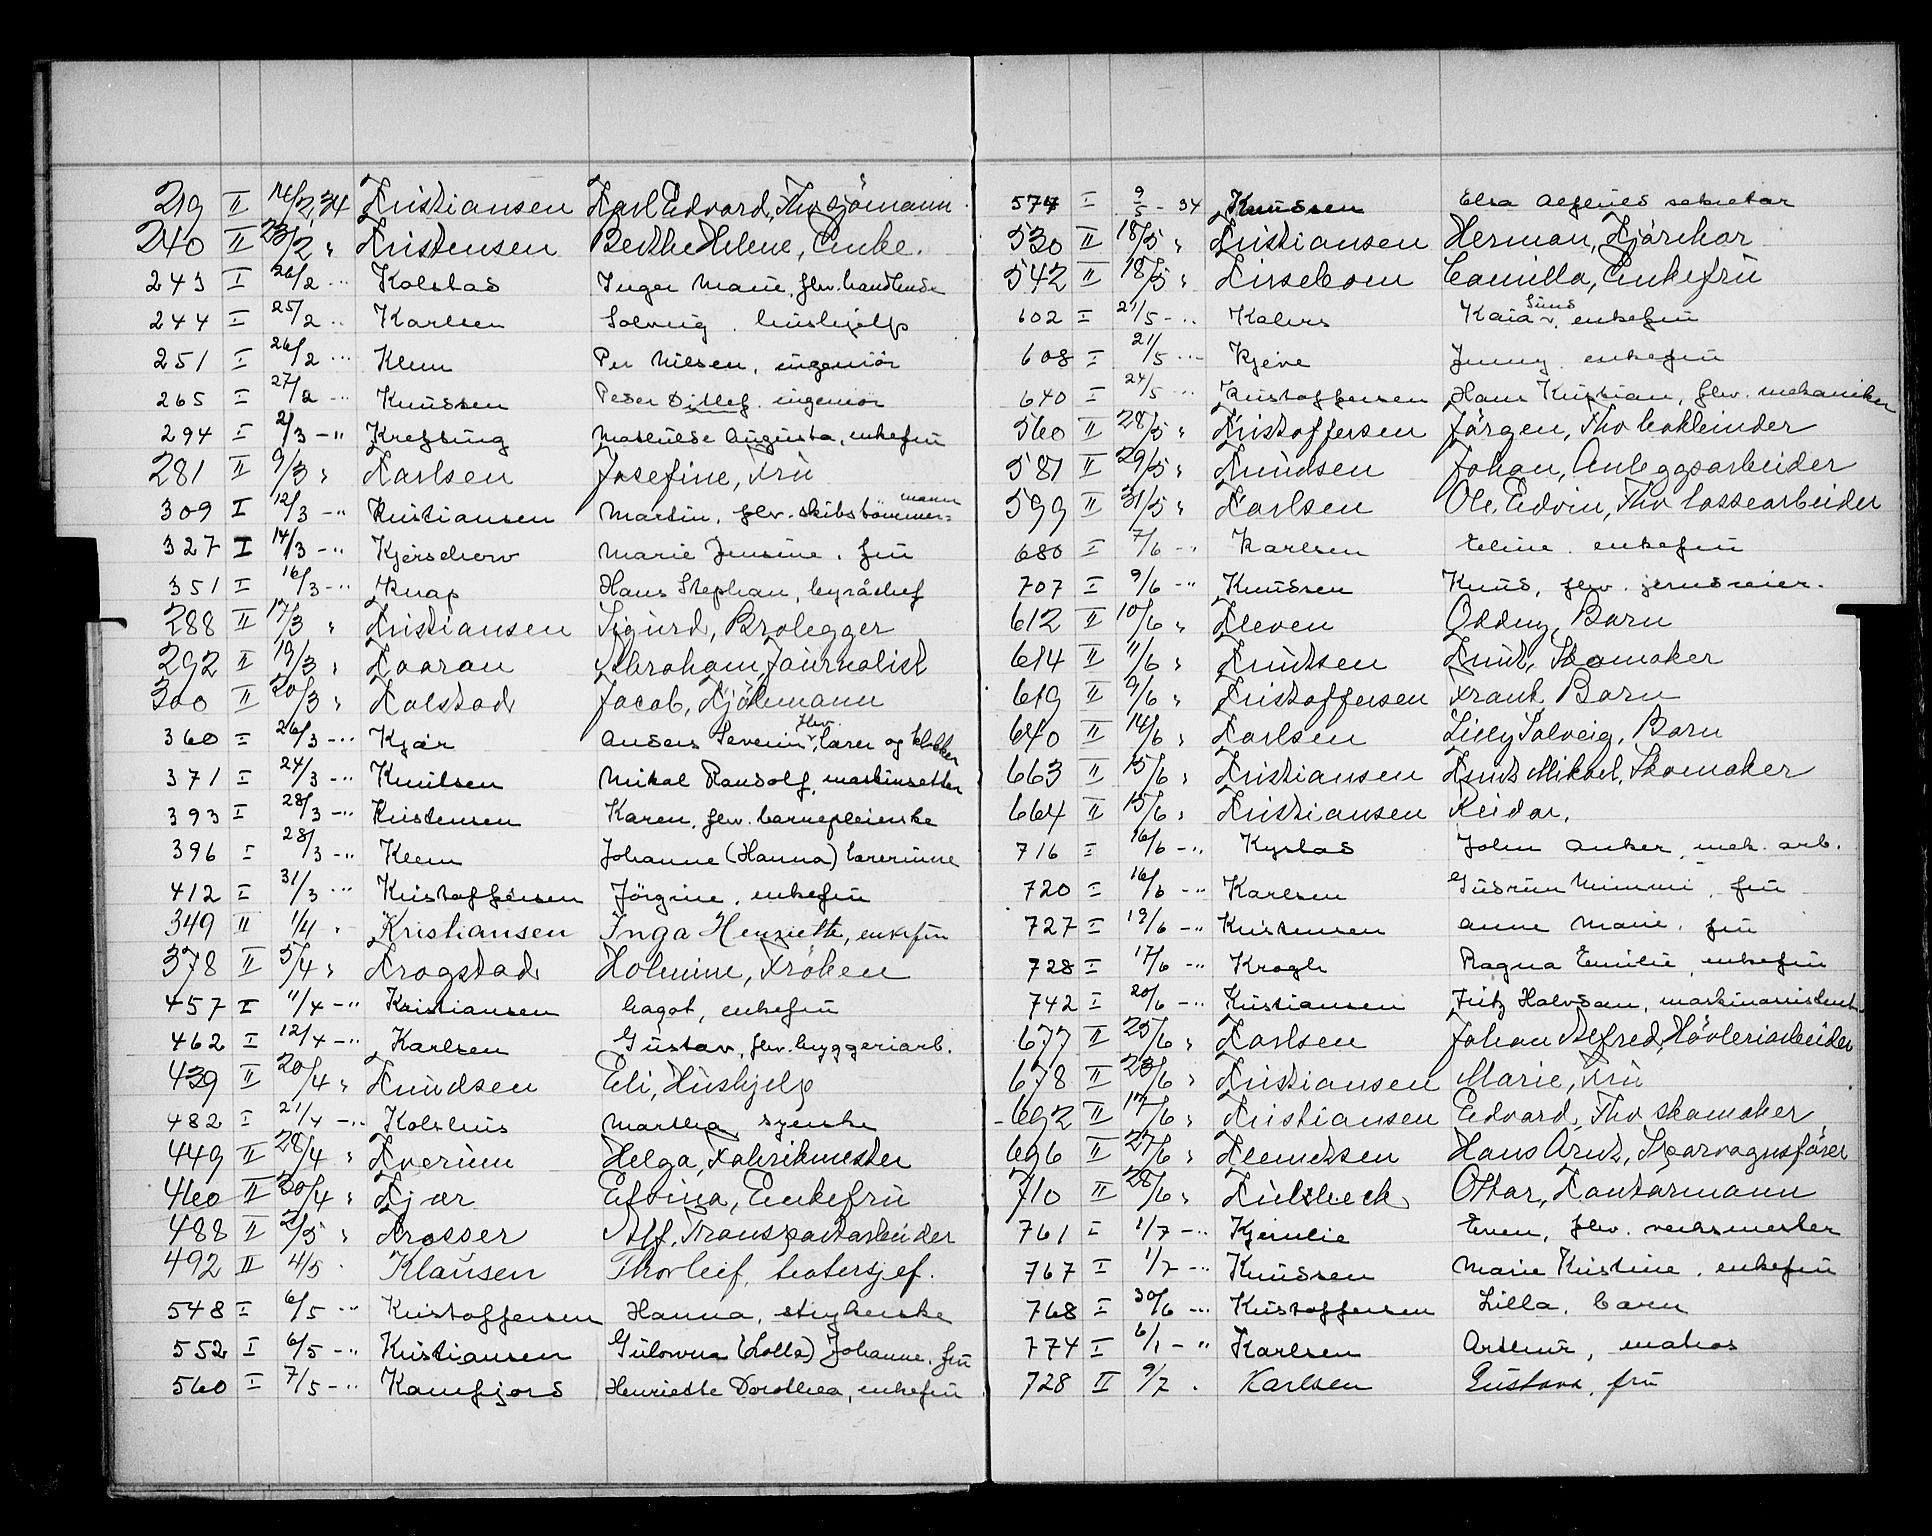 219 II 16/2 34 Kristiansen Karl Edvard, Fhv sjömann
240 II 23/2 " Kristensen Berthe Helene, Enke.
243 I 26/2 -" Kolstad Inger Marie, fhv. handlende
244 I 25/2 -" Karlsen Solveig, hushjelp
251 I 26/2 -" Klem Per Nilsen, ingeniör
265 I 27/2 -" Knudsen Peder Ditlef, ingeniör
294 I 2/3 -" Krefting Mathilde Augusta, enkefru
281 II 9/3 " Karlsen Josefine, Fru
309 I 12/3 -" Kristiansen Martin, fhv. skibstömmermann
327 I 14/3 -" Kjerschow Marie Jensine, fru
351 I 16/3 -" Knap Hans Stephan, byråchef
288 II 17/3 " Kristiansen Sigurd, Brolegger
292 II 19/3 " Kaaran Abraham, Journalist
300 II 20/3 " Kolstad Jacob, Kjöbmann
360 I 26/3 -" Kjær Anders Severin, fhv. lærer og klokker
371 I 24/3 -" Knutsen Mikal Randolf, maskinsetter
393 I 28/3 -" Kristensen Karen, fhv. barnepleierske
396 I 28/3 -" Klem Johanne (Hanna) lærerinne
412 I 31/3 -" Kristoffersen Jörgine, enkefru
349 II 1/4 " Kristiansen Inga Henriette, enkefru
378 II 5/4 " Krogstad Holmine, Fröken
457 I 11/4 -" Kristiansen Dagot, enkefru
462 I 12/4 -" Karlsen Gustav, fhv. bryggeriarb.
439 II 20/4 " Knudsen Eli, Hushjelp
482 I 21/4 -" Kolshus Martha, syerske
449 II 28/4 " Kverum Helga, Fabrikmester
460 II 30/4 " Kjær Edvina, Enkefru
488 II 2/5 " Krosser Alf, Transportarbeider
492 II 4/5 " Klausen Thorleif, teatersjef.
548 I 6/5 -" Kristoffersen Hanna, strykerske
552 I 6/5 -" Kristiansen Gulowna (Lolla) Johanne, fru
560 I 7/5 -" Kamfjord Henriette Dorothea, enkefru
574 I 9/5 - 34 Knudsen Elsa sekretær
530 II 18/5 " Kristiansen Herman, Kjörekar
542 II 18/5 " Kirsebom Camilla, Enkefru
602 I 21/5 -" Kolers Kaia Sund, enkefru
608 I 21/5 -" Kjeve Jenny, enkefru
640 I 24/5 -" Kristoffersen Hans Kristian, fhv. mekaniker
560 II 28/5 " Kristoffersen Jörgen, Fhv bokbinder
581 II 29/5 " Knudsen Johan, Anleggsarbeider
599 II 31/5 " Karlsen Ole Edvin, Fhv lossearbeider
680 I 7/6 -" Karlsen Eline, enkefru
707 I 9/6 -" Knudsen Knud, fhv. jerndreier.
612 II 10/6 " Kleven Oddny, Barn
614 II 11/6 " Knutsen Knut, Skomaker
619 II 9/6 " Kristoffersen Frank, Barn
640 II 14/6 " Karlsen Lilly Solveig, Barn
663 II 15/6 " Kristiansen Knut Mikael, Skomaker
664 II 15/6 " Kristiansen Reidar,
716 I 16/6 -" Kystad John Anker, mek. arb.
720 I 16/6 -" Karlsen Gudrun Mimmi, fru
727 I 19/6 -" Kristensen Anne Marie, fru
728 I 17/6 -" Krogh Ragna Emilie, enkefru
742 I 20/6 -" Kristiansen Fritz Halvdan, maskinassistent
677 II 25/6 " Karlsen Johan Alfred, Hövleriarbeider
678 II 23/6 " Kristiansen Marie, Fru
692 II 17/6 " Kristiansen Edvard, Fhv skomaker
696 II 27/6 " Klemetsen Hans Arnt, Sporvognsförer
710 II 28/6 " Kulsbeck Ottar, Kontormann
761 I 1/7 -" Kjernlie Even, fhv. verksmester
767 I 1/7 -" Knudsen Marie Kristine, enkefru
768 I 30/6 -" Kristoffersen Lilla, barn
774 I 6/1 -" Karlsen Arthur, matros
728 II 9/7 " Karlsen Gustava, fru